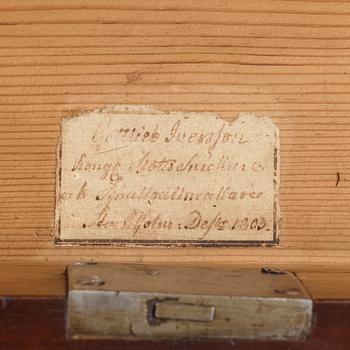 Gottlieb Iverson
Kongl Hofs Snickare
och Spullottmakare
Stockholm: Dess 1803.